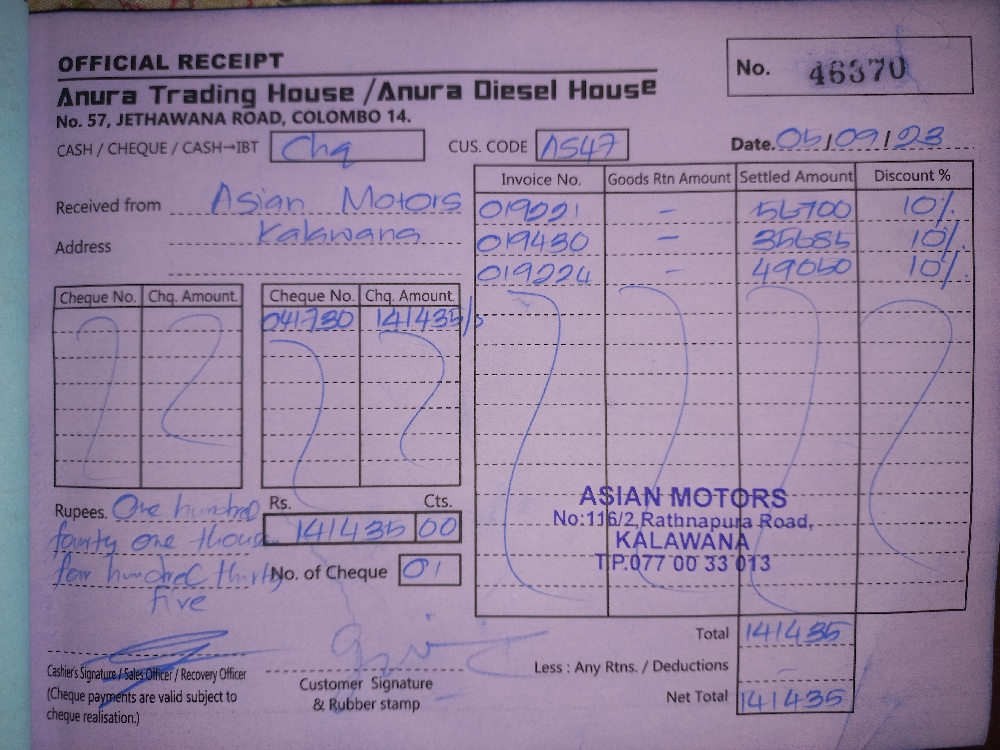 OFFICIAL RECEIPT
No. 46370
Anura Trading House /Anura Diesel House
No. 57, JETHAWANA ROAD, COLOMBO 14.
CASH / CHEQUE / CASH→IBT Chq CUS. CODE AS47 Date. 05/09/23
Invoice No. Goods Rtn Amount Settled Amount Discount %
Received from Asian Motors
019221 - 56700 10%
Address Kalawana
019430 - 35685 10%
019224 - 49050 10%
Cheque No. Chq. Amount. Cheque No. Chq. Amount.
041730 141435/-
ASIAN MOTORS
No:116/2,Rathnapura Road,
KALAWANA
T.P.077 00 33 013
Rupees. One hundred Rs. Cts.
fourty one thous 141435 00
four hundred thirty No. of Cheque 01
five
Total 141435
Less : Any Rtns. / Deductions -
Net Total 141435
Cashier's Signature / Sales Officer / Recovery Officer
(Cheque payments are valid subject to
cheque realisation.)
Customer Signature
& Rubber stamp